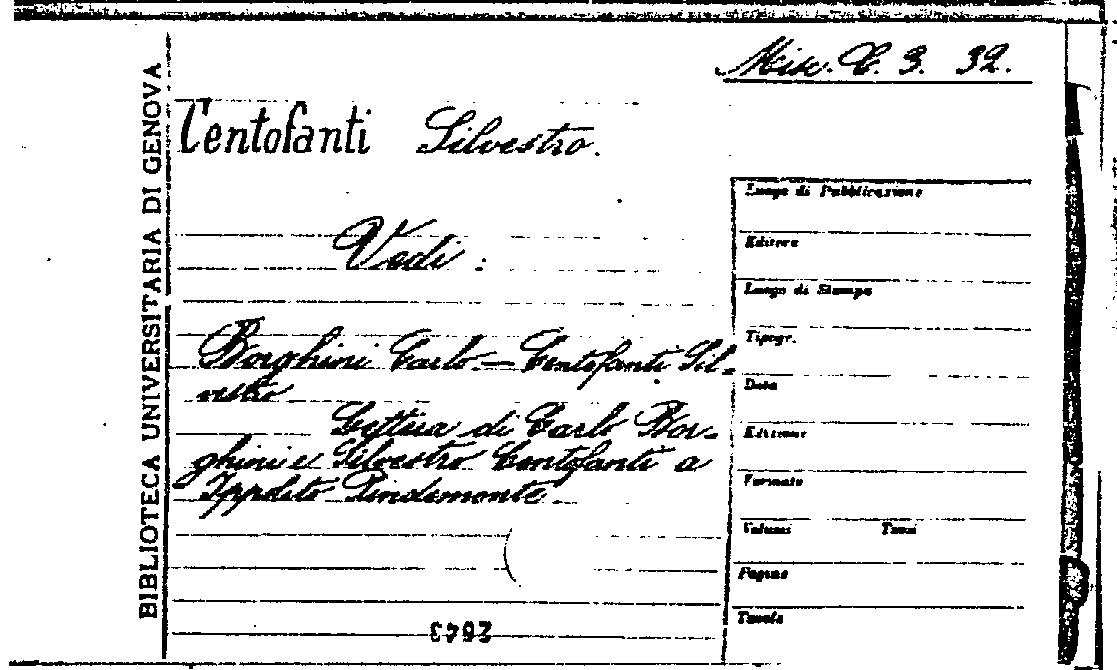 Misc. C. 3. 32.
BIBLIOTECA UNIVERSITARIA DI GENOVA
Centofanti Silvestro.
Vedi :
Borghini Carlo — Centofanti Sil-
vestro
Lettera di Carlo Bor-
ghini e Silvestro Centofanti a
Ippolito Pindemonte
Luogo di Pubblicazione
Editore
Luogo di Stampa
Tipogr.
Data
Edizione
Formato
Volumi Tomi
Pagine
Tavole
2643